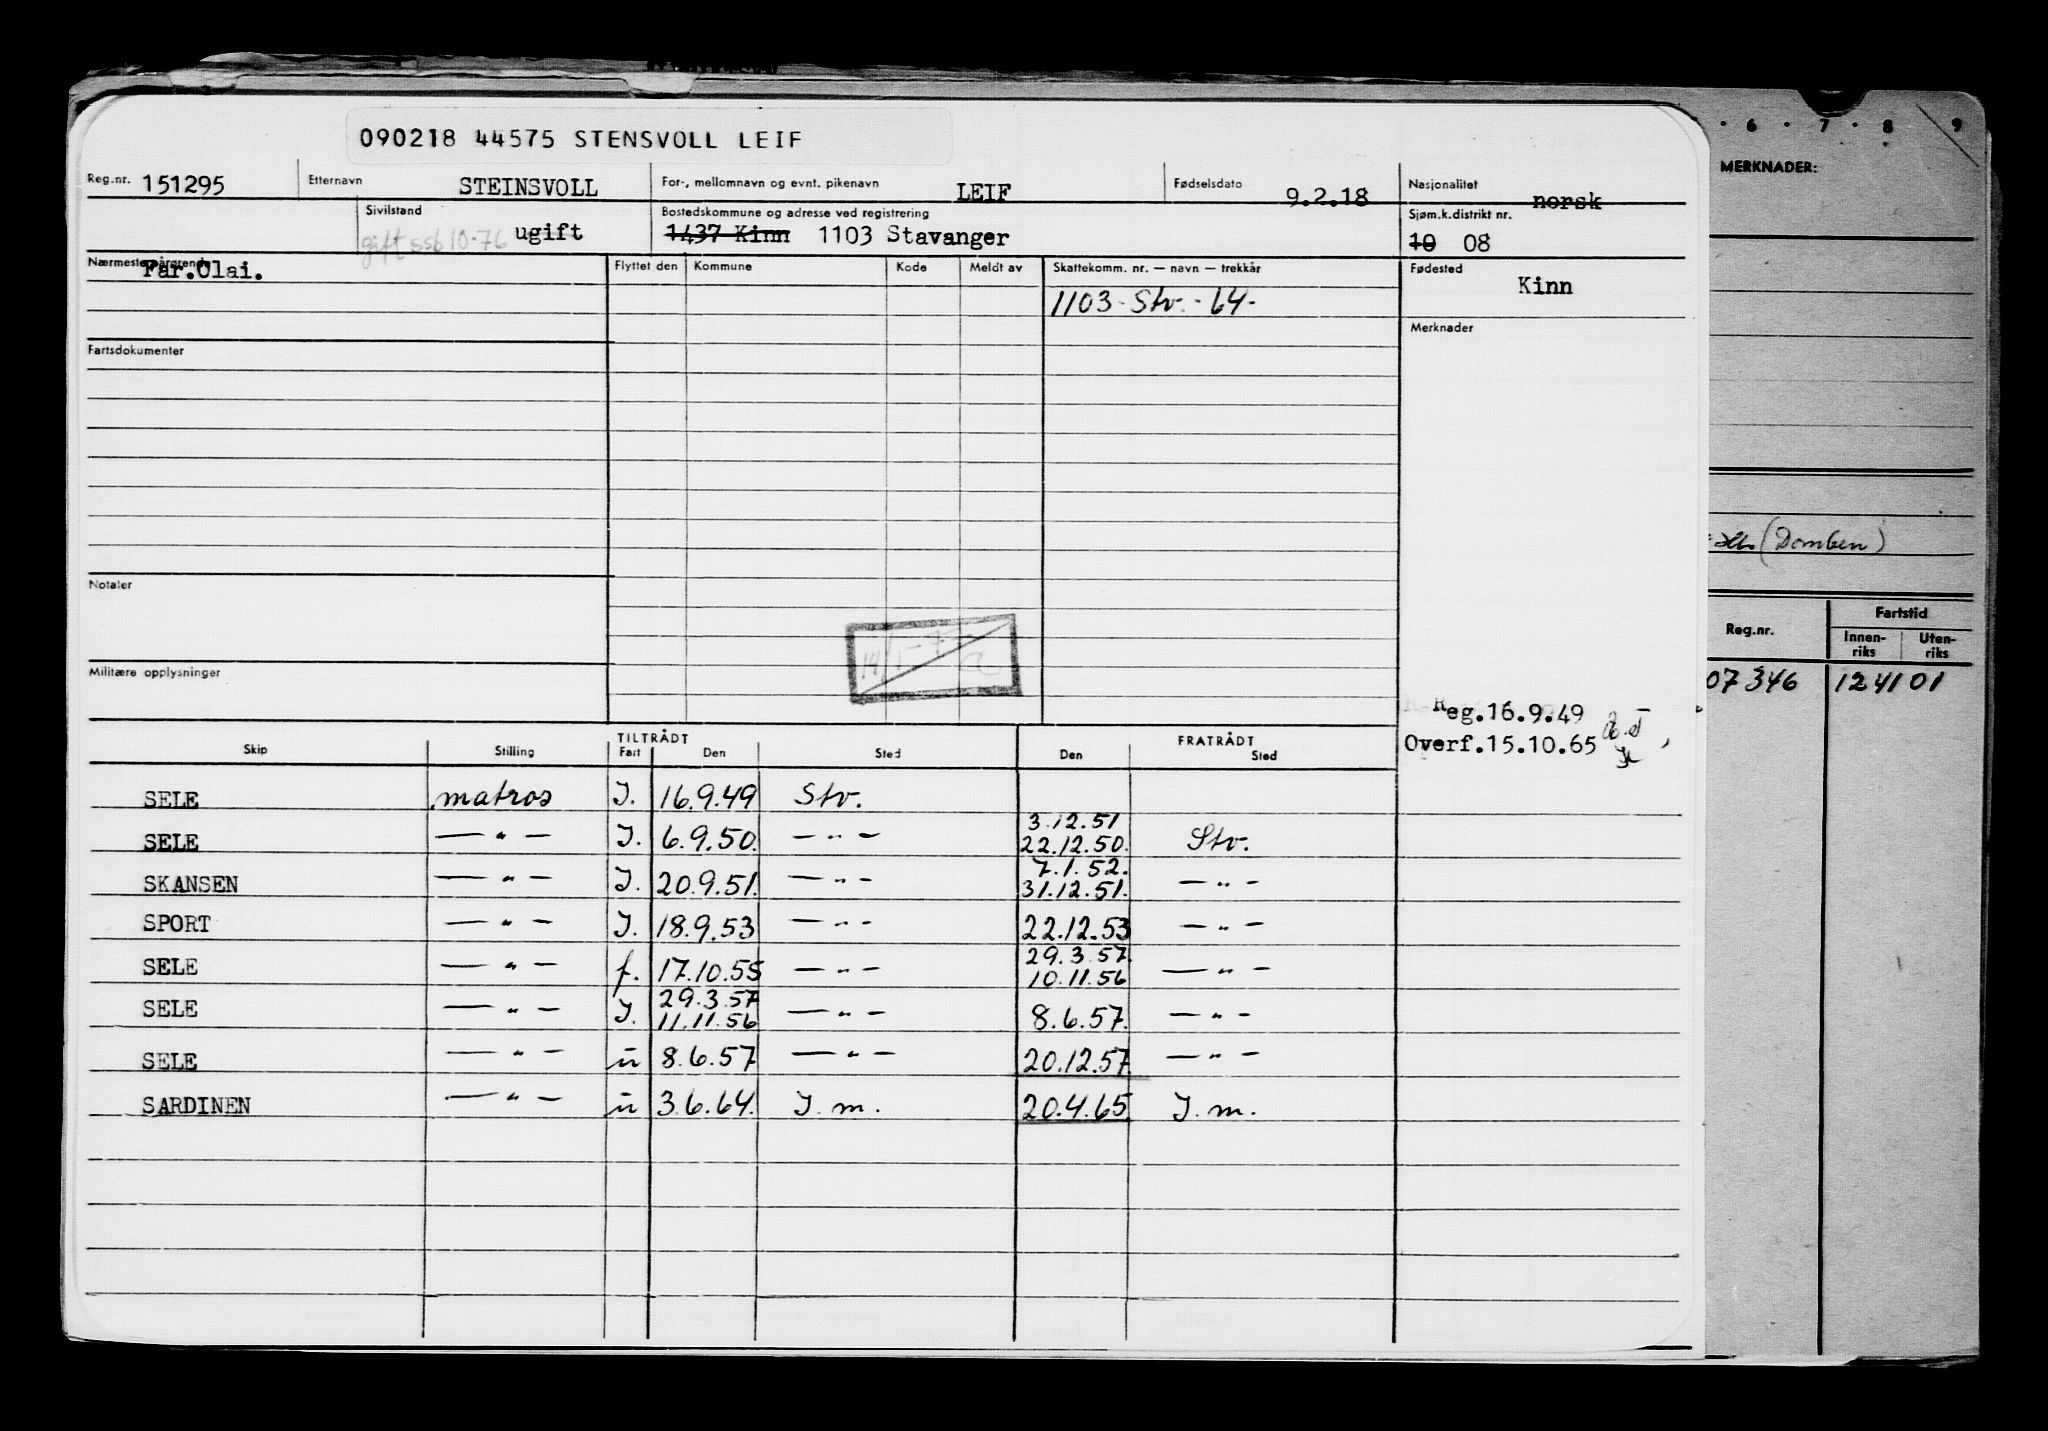 090218 44575 STENSVOLL LEIF
Reg.nr. 151295 Etternavn STEINSVOLL For-, mellomnavn og evnt. pikenavn LEIF Fødselsdato 9.2.18 Nasjonalitet norsk
Sivilstand gift ssb 10-76 ugift Bostedskommune og adresse ved registrering 1437 Kinn 1103 Stavanger Sjøm.k.distrikt nr. 10 08
Nærmeste pårørende Far.Olai. Flyttet den Kommune Kode Meldt av Skattekomm. nr. — navn — trekkår Fødested Kinn
1103 - Stv. - 64 -
Merknader
Fartsdokumenter
Notater
Militære opplysninger
Reg.16.9.49
Overf.15.10.65
Skip Stilling TILTRÅDT Fart Den Sted FRATRÅDT Den Sted
SELE matros I. 16.9.49 Stv.
SELE — " — I. 6.9.50. — " — 3.12.51 22.12.50. Stv.
SKANSEN — " — I. 20.9.51. — " — 7.1.52. 31.12.51. — " —
SPORT — " — I. 18.9.53 — " — 22.12.53 — " —
SELE — " — f. 17.10.55 — " — 29.3.57. 10.11.56 — " —
SELE — " — I. 29.3.57 11.11.56 — " — 8.6.57. — " —
SELE — " — ū 8.6.57 — " — 20.12.57 — " —
SARDINEN — " — ū 3.6.64. I.m. 20.4.65 I.m.
6 7 8 9
MERKNADER:
(Domben)
Reg.nr. Fartstid
Innenriks Utenriks
07346 124101